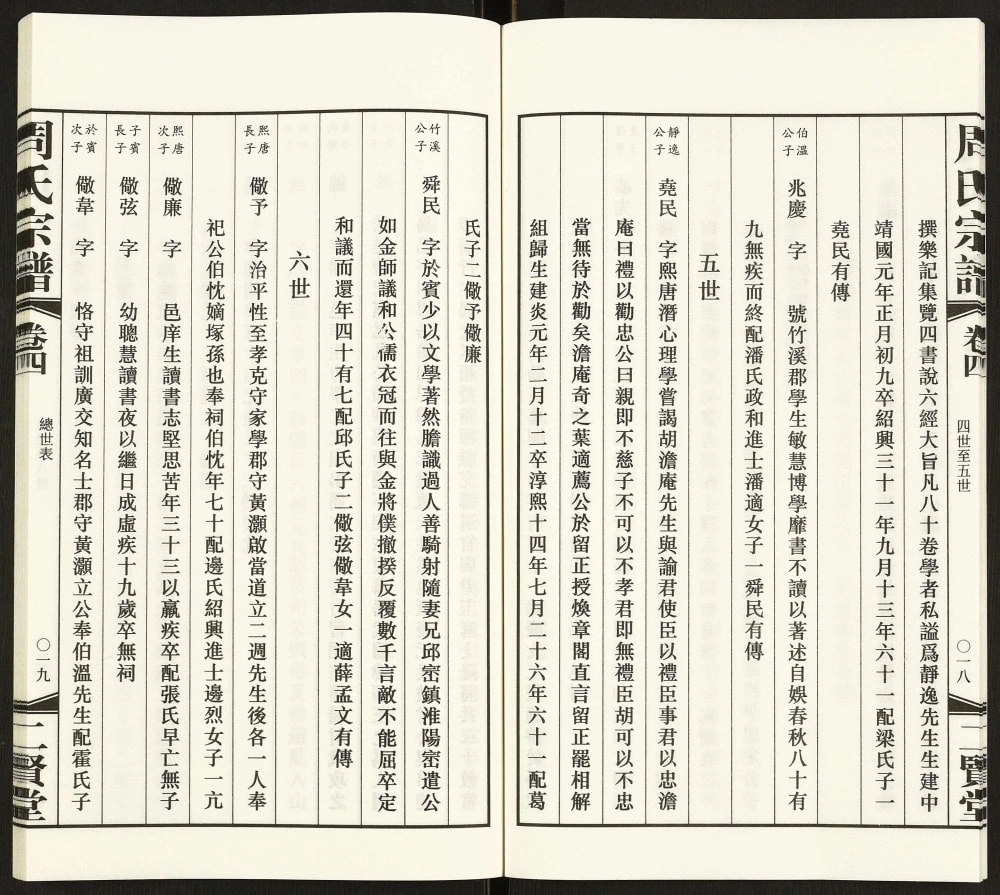 周氏宗譜 卷四 四世至五世 〇一八 二賢堂
撰樂記集覽四書說六經大旨凡八十卷學者私謚爲靜逸先生生建中
靖國元年正月初九卒紹興三十一年九月十三年六十一配梁氏子一
堯民有傳
伯溫公子 兆慶 字 號竹溪郡學生敏慧博學靡書不讀以著述自娛春秋八十有
九無疾而終配潘氏政和進士潘適女子一舜民有傳
五世
靜逸公子 堯民 字熙唐潛心理學嘗謁胡澹庵先生與諭君使臣以禮臣事君以忠澹
庵曰禮以勸忠公曰親即不慈子不可以不孝君即無禮臣胡可以不忠
當無待於勸矣澹庵奇之葉適薦公於留正授煥章閣直言留正罷相解
組歸生建炎元年二月十二卒淳熙十四年七月二十六年六十一配葛
氏子二儆予儆廉
竹溪公子 舜民 字於賓少以文學著然膽識過人善騎射隨妻兄邱崈鎮淮陽崈遣公
如金師議和公儒衣冠而往與金將僕撤揆反覆數千言敵不能屈卒定
和議而還年四十有七配邱氏子二儆弦儆韋女一適薛孟文有傳
六世
熙唐長子 儆予 字治平性至孝克守家學郡守黃灝啟當道立二週先生後各一人奉
祀公伯忱嫡塚孫也奉祠伯忱年七十配邊氏紹興進士邊烈女子一亢
熙唐次子 儆廉 字 邑庠生讀書志堅思苦年三十三以羸疾卒配張氏早亡無子
子賓長子 儆弦 字 幼聰慧讀書夜以繼日成虛疾十九歲卒無祠
於賓次子 儆韋 字 恪守祖訓廣交知名士郡守黃灝立公奉伯溫先生配霍氏子
周氏宗譜 卷四 總世表 〇一九 二賢堂